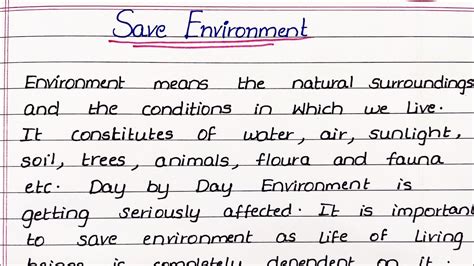 Save Environment
Environment means the natural surroundings
and the conditions in which we Live.
It constitutes of water, air, sunlight,
soil, trees, animals, floura and fauna
etc. Day by Day Environment is
getting seriously affected. It is important
to save environment as life of Living
beings is completely dependent on it.